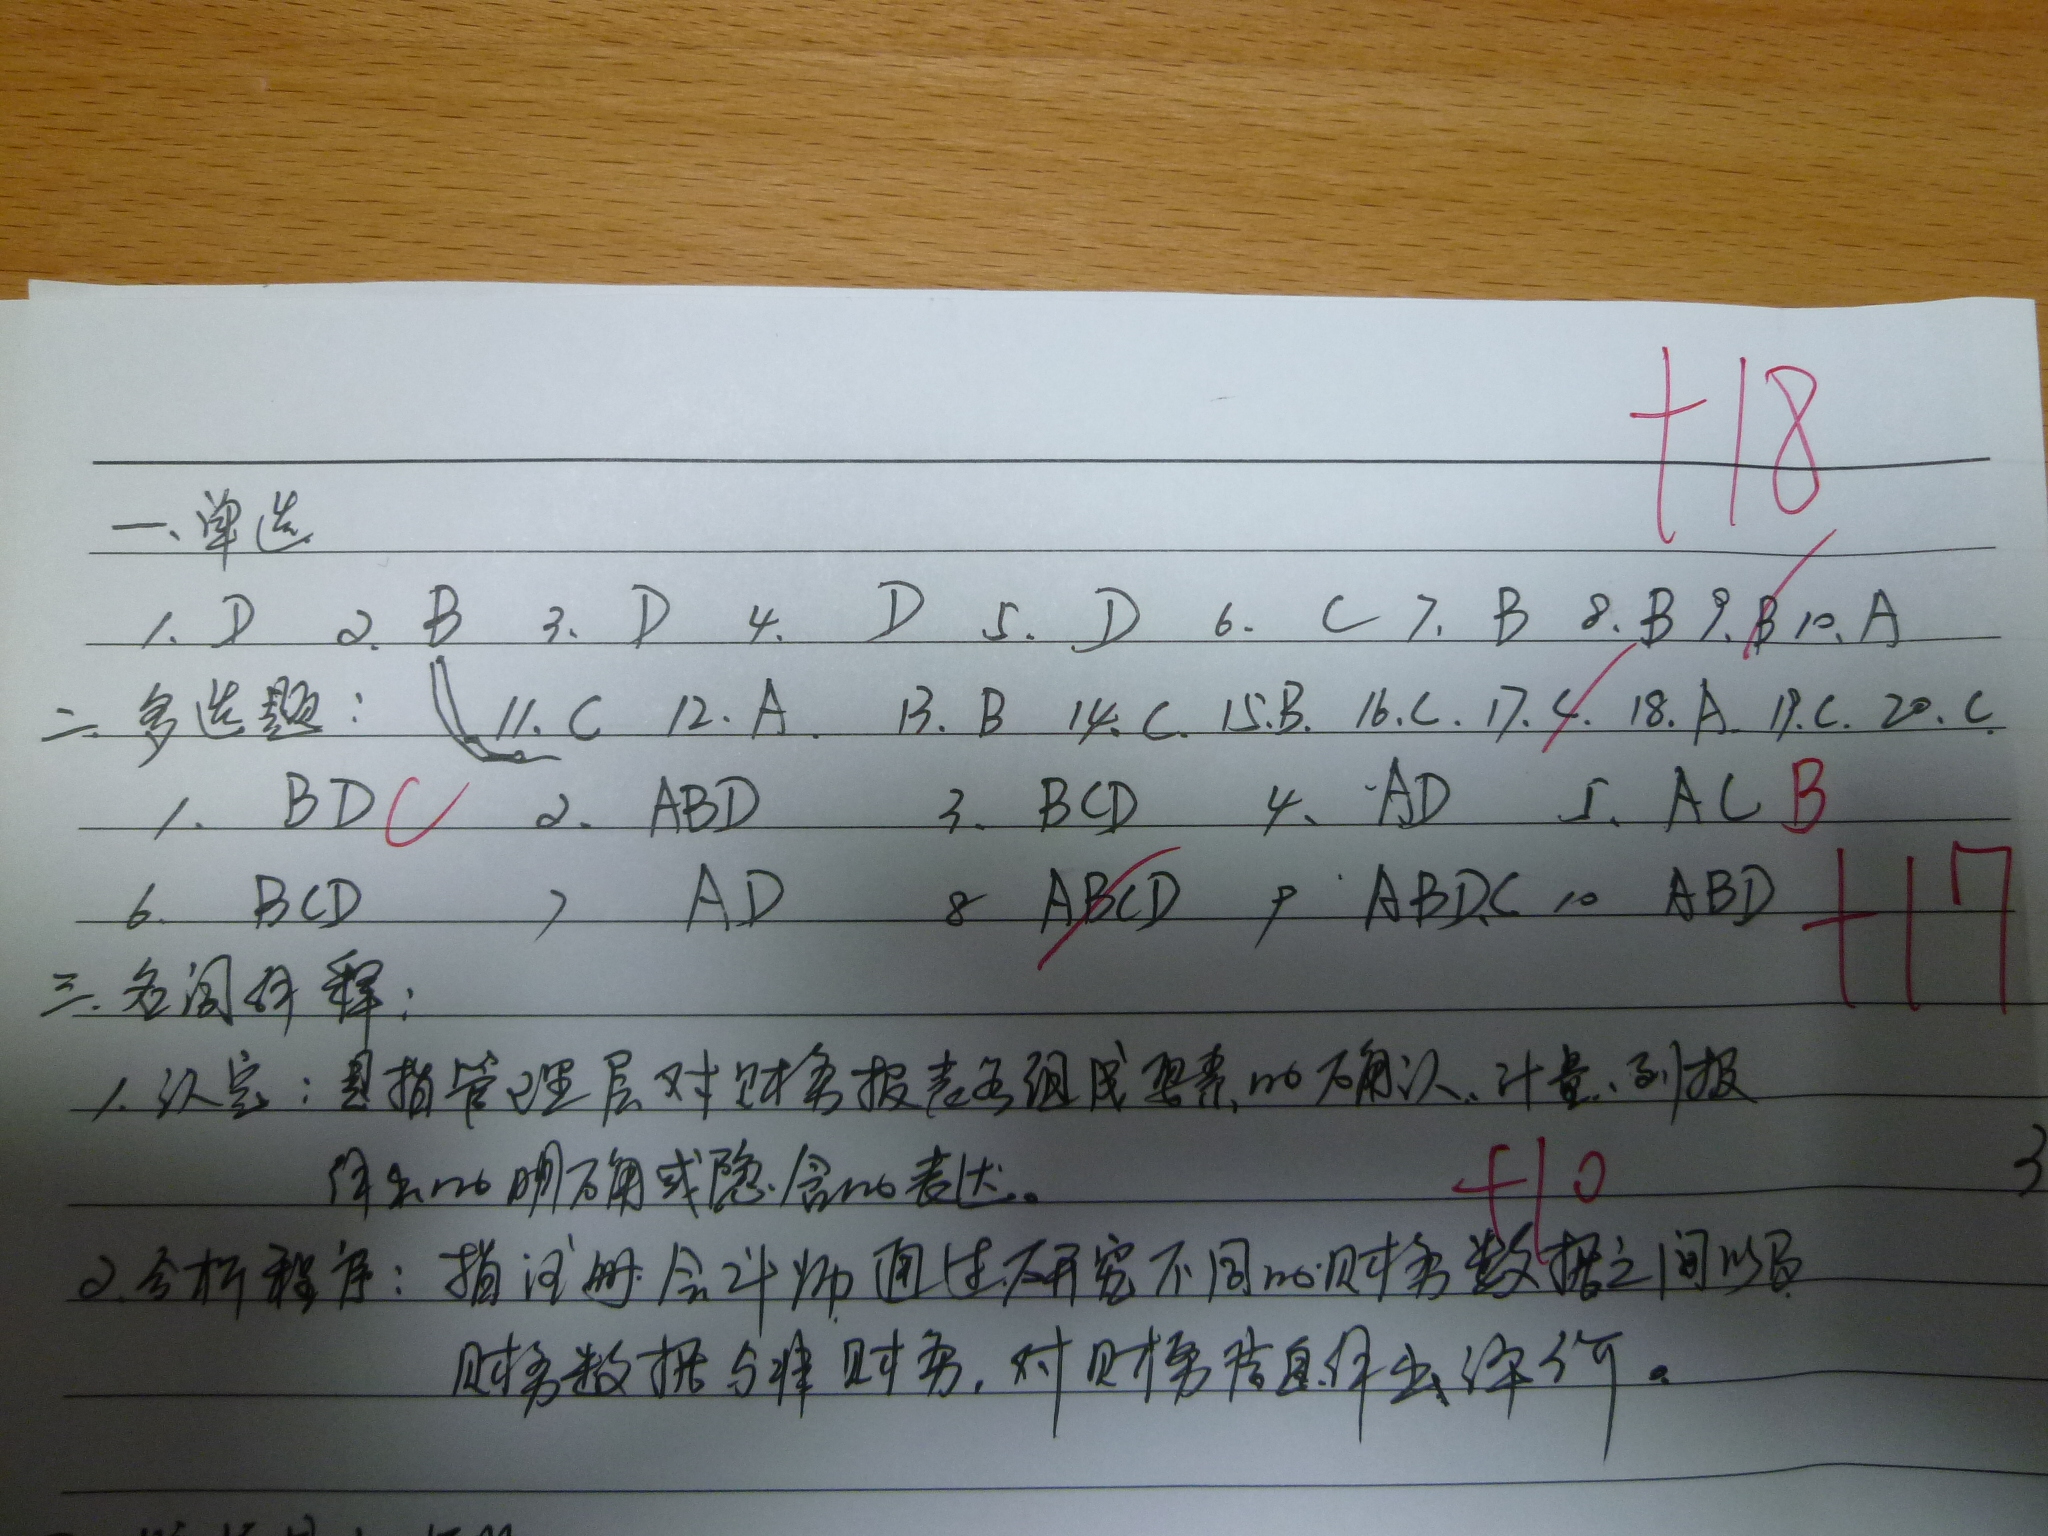 +18
一、单选
1. D 2. B 3. D 4. D 5. D 6. C 7. B 8. B 9. B 10. A
二、多选题: 11. C 12. A. 13. B 14. C. 15. B. 16. C. 17. C. 18. A. 19. C. 20. C.
1. BDC 2. ABD 3. BCD 4. AD 5. AC B
6. BCD 7 AD 8 ABCD 9 ABDC 10 ABD +17
三、名词解释:
1. 认定: 是指管理层对财务报表各组成要素的确认、计量、列报
作出的明确或隐含的表达。 +10 3
2. 分析程序: 指注册会计师通过研究不同的财务数据之间以及
财务数据与非财务,对财务信息作出评价。